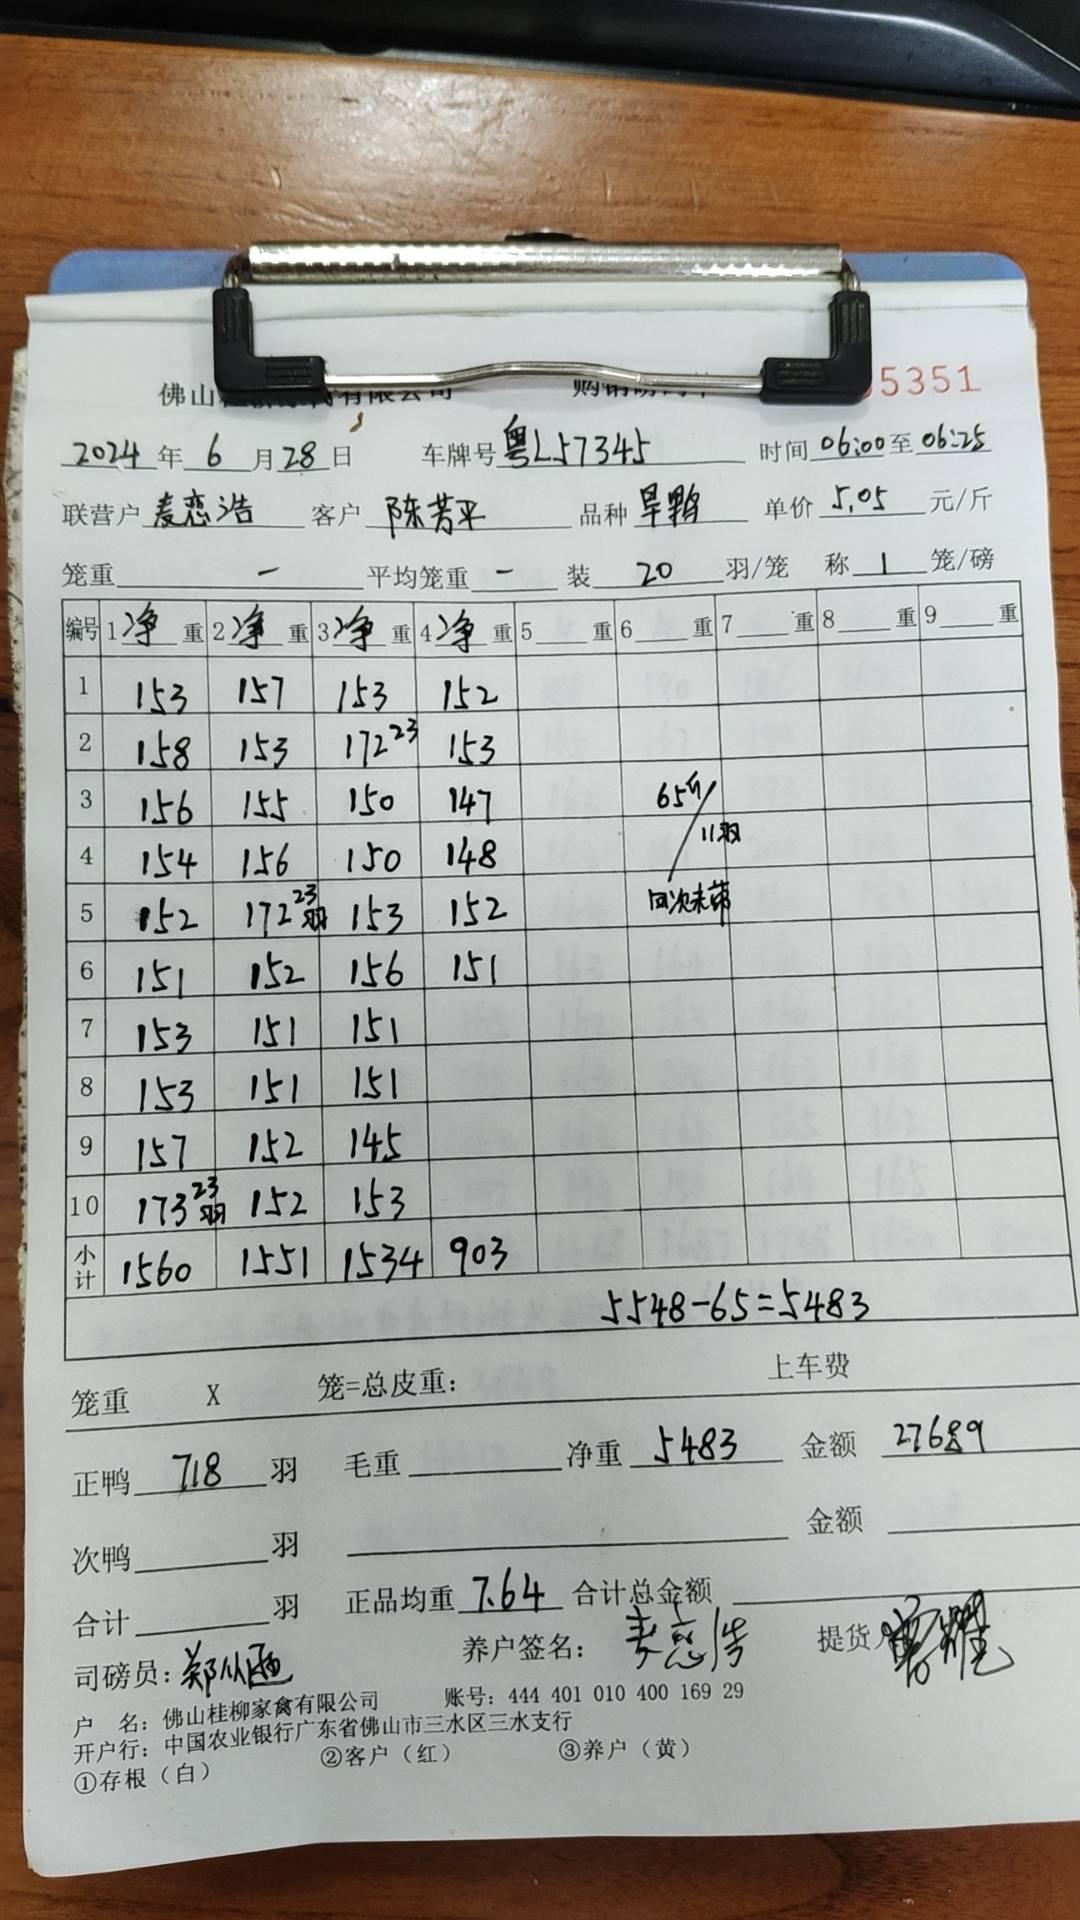 佛山桂柳家禽有限公司 购销磅码单 5351
2024年6月28日 车牌号粤L57345 时间06:00至06:25
联营户麦恋浩 客户陈芳平 品种旱鸭 单价5.05元/斤
笼重一 平均笼重一 装20羽/笼 称1笼/磅
编号 1净重 2净重 3净重 4净重 5重 6重 7重 8重 9重
1 153 157 153 152
2 158 153 172 23 153
3 156 155 150 147 65斤/11羽
4 154 156 150 148
5 152 172 23羽 153 152 回次未带
6 151 152 156 151
7 153 151 151
8 153 151 151
9 157 152 145
10 173 23羽 152 153
小计 1560 1551 1534 903
5548-65=5483
笼重 X 笼=总皮重: 上车费
正鸭718羽 毛重 净重5483 金额27689
次鸭 羽 金额
合计 羽 正品均重7.64 合计总金额
司磅员: 养户签名: 提货
户 名: 佛山桂柳家禽有限公司 账号: 444 401 010 400 169 29
开户行: 中国农业银行广东省佛山市三水区三水支行
①存根（白） ②客户（红） ③养户（黄）